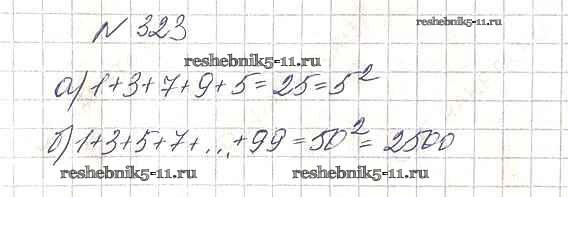 reshebnik5-11.ru
№ 323
reshebnik5-11.ru
а) 1+3+7+9+5=25=5²
б) 1+3+5+7+...+99=50²=2500
reshebnik5-11.ru reshebnik5-11.ru